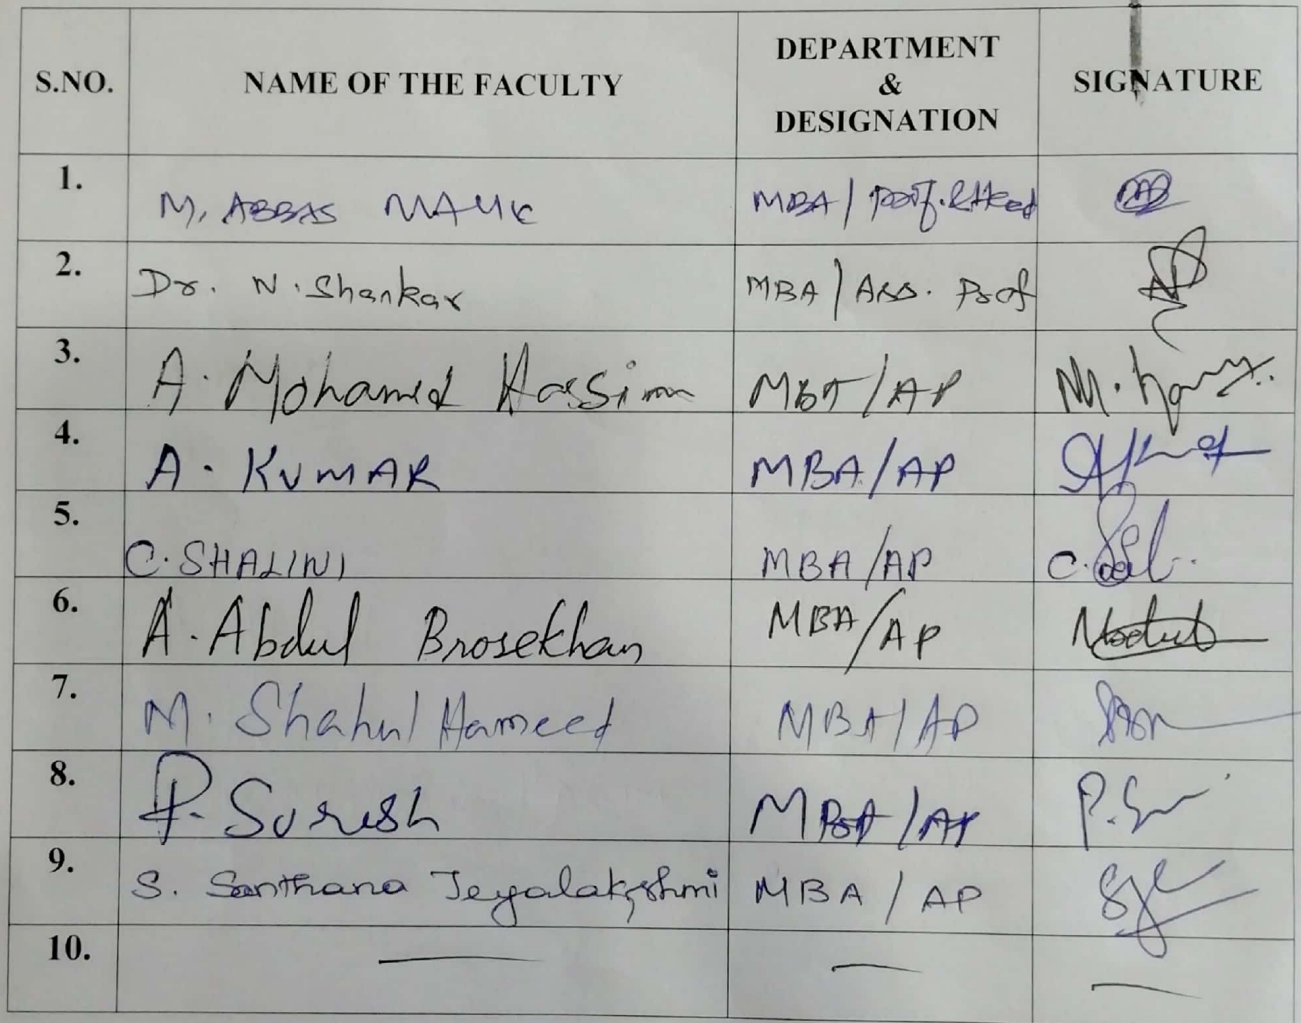 S.NO. NAME OF THE FACULTY DEPARTMENT & DESIGNATION SIGNATURE
1. M. ABBAS MALIK MBA / Prof. & Head
2. Dr. N. Shankar MBA / Ass. Prof
3. A. Mohamed Kassim MBA / AP
4. A. KUMAR MBA / AP
5. C. SHALINI MBA / AP
6. A. Abdul Brosekhan MBA / AP
7. M. Shahul Hameed MBA / AP
8. P. Suresh MBA / AP P.
9. S. Santhana Jeyalakshmi MBA / AP
10. — — —